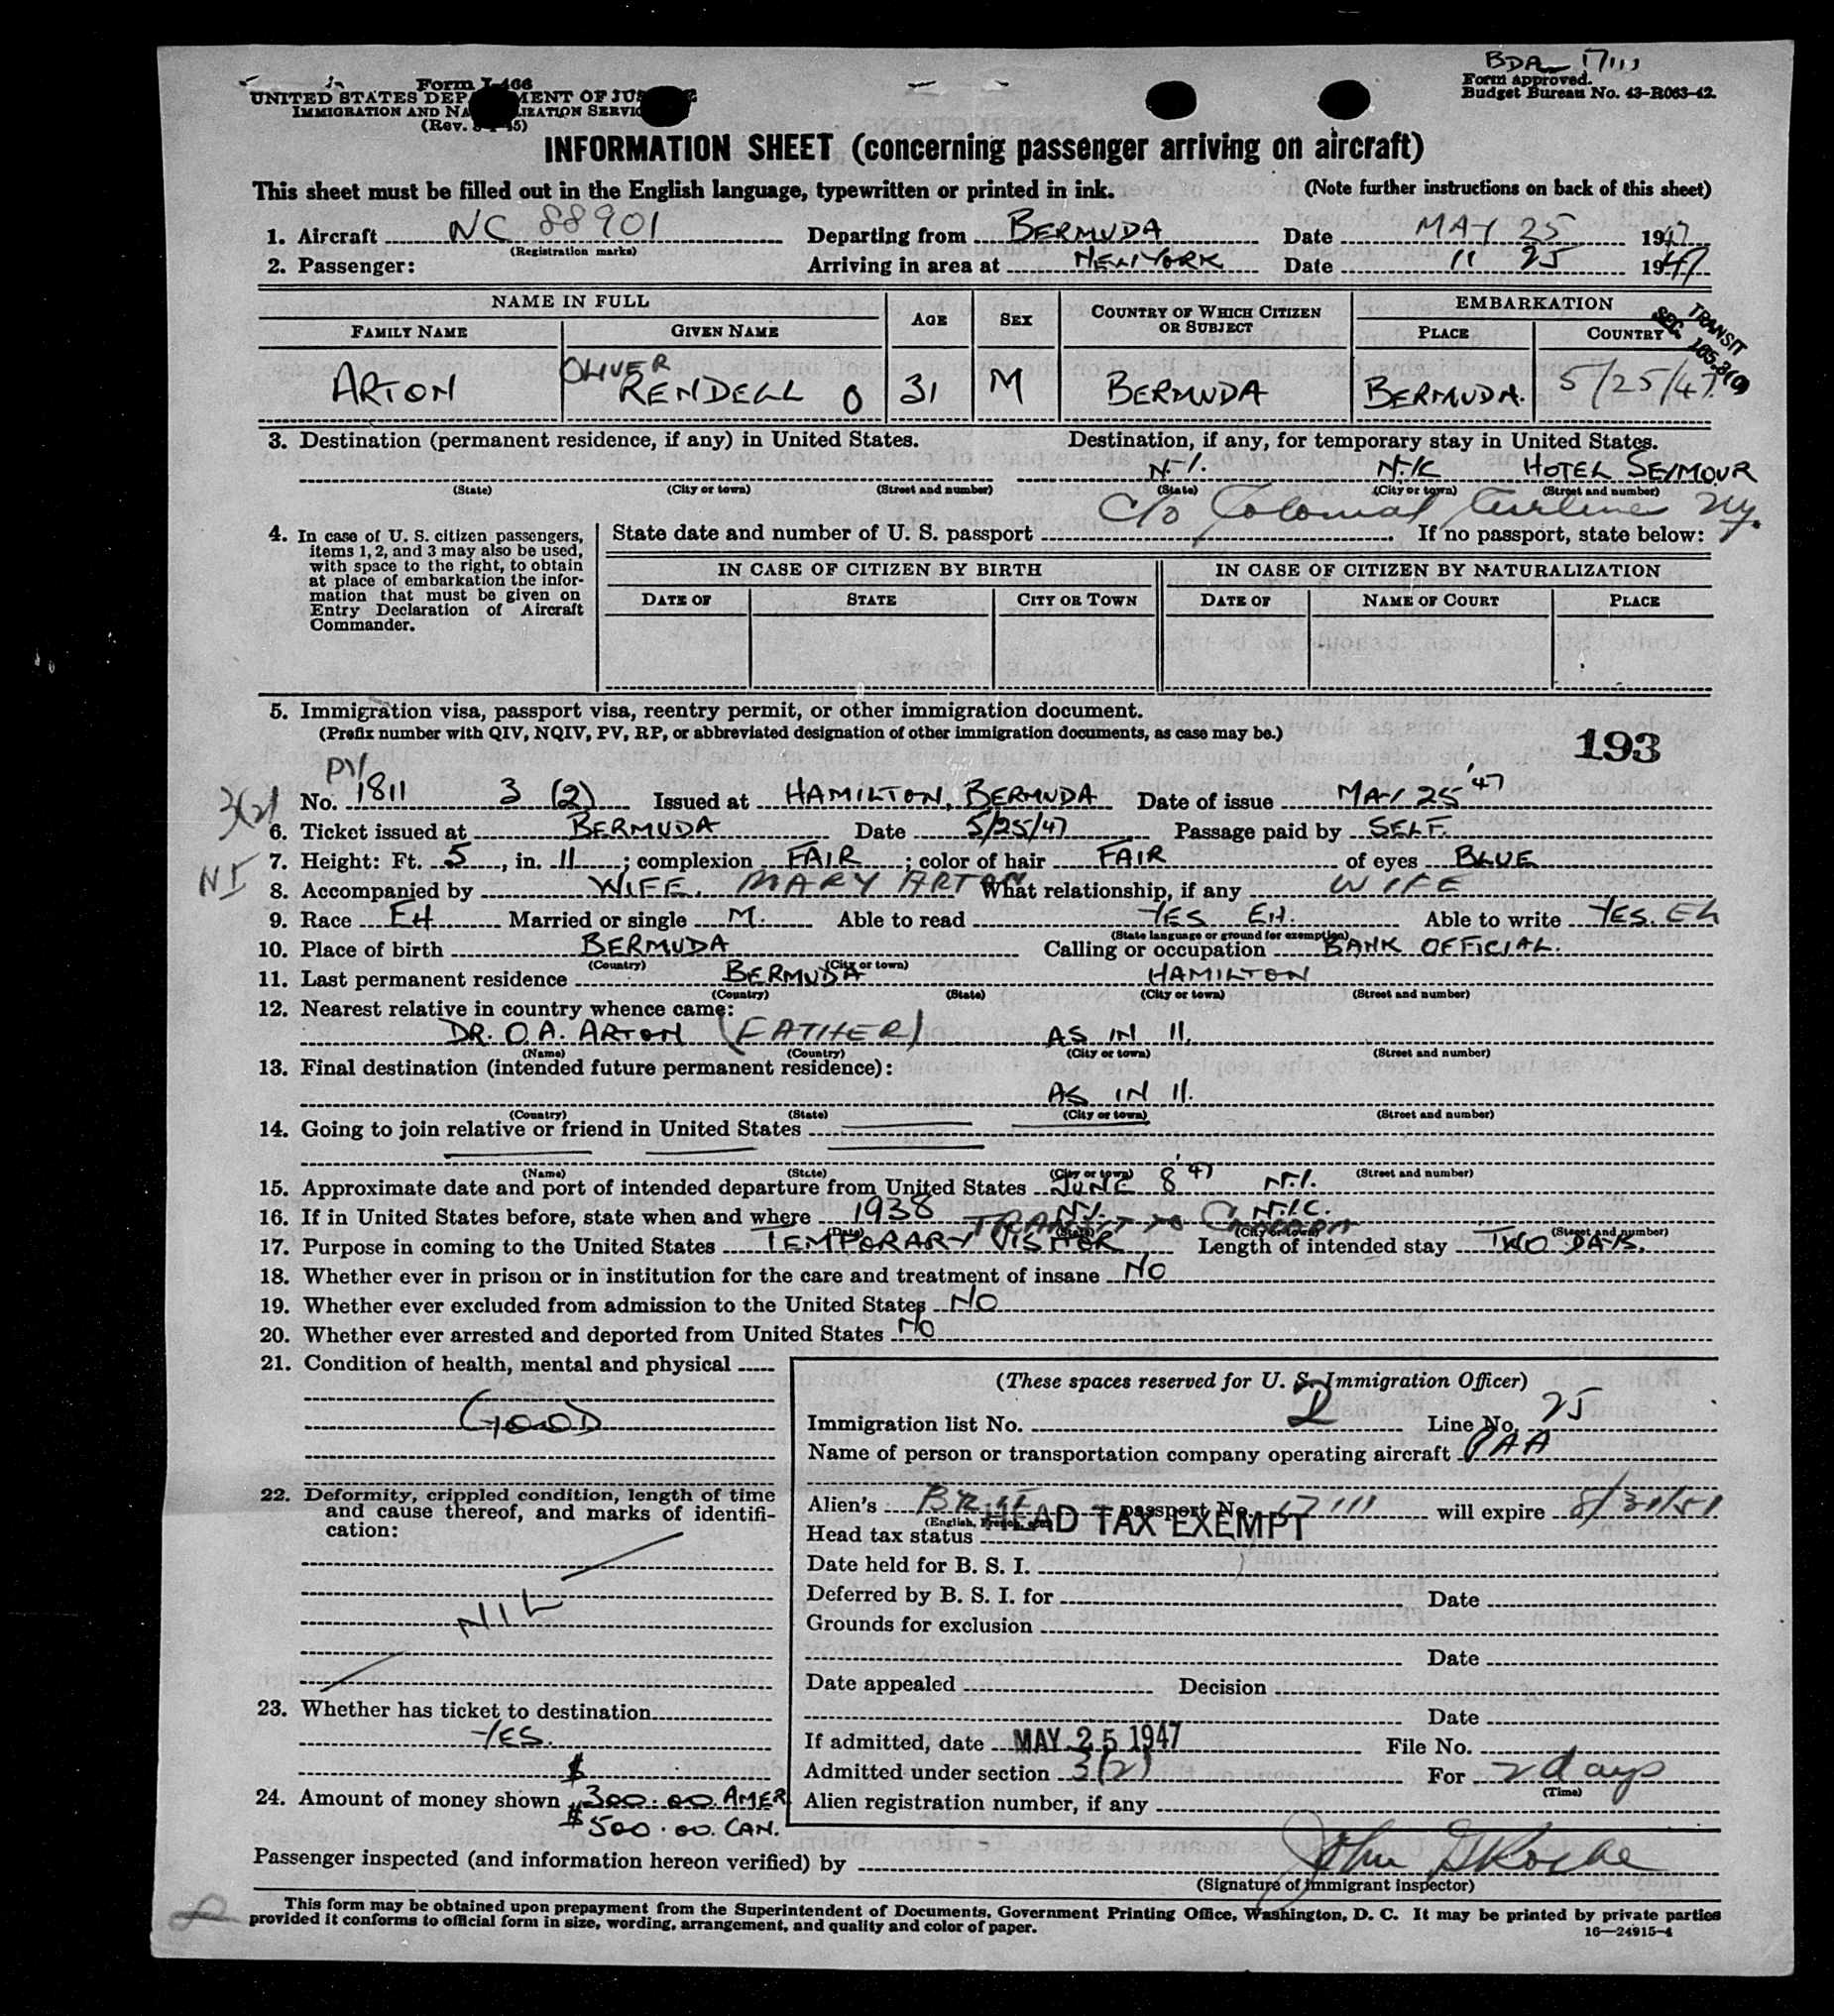 BDA 17111
Form I-466
UNITED STATES DEPARTMENT OF JUSTICE
IMMIGRATION AND NATURALIZATION SERVICE
(Rev. 5)
Form approved.
Budget Bureau No. 43-R063-42.
INFORMATION SHEET (concerning passenger arriving on aircraft)
This sheet must be filled out in the English language, typewritten or printed in ink. (Note further instructions on back of this sheet)
1. Aircraft NC 88901 Departing from BERMUDA Date MAY 25 1947
(Registration marks)
2. Passenger: Arriving in area at NEW YORK Date 11 25 1947
NAME IN FULL AGE SEX COUNTRY OF WHICH CITIZEN OR SUBJECT EMBARKATION
FAMILY NAME GIVEN NAME PLACE COUNTRY
TRANSIT SEC. 165.3(g)
ARTON OLIVER RENDELL O 31 M BERMUDA BERMUDA. 5/25/47
3. Destination (permanent residence, if any) in United States. Destination, if any, for temporary stay in United States.
N.Y. N.Y.C HOTEL SEYMOUR
(State) (City or town) (Street and number) (State) (City or town) (Street and number)
c/o Colonial Airlines NY.
4. In case of U. S. citizen passengers, items 1, 2, and 3 may also be used, with space to the right, to obtain at place of embarkation the information that must be given on Entry Declaration of Aircraft Commander.
State date and number of U. S. passport If no passport, state below:
IN CASE OF CITIZEN BY BIRTH IN CASE OF CITIZEN BY NATURALIZATION
DATE OF STATE CITY OR TOWN DATE OF NAME OF COURT PLACE
5. Immigration visa, passport visa, reentry permit, or other immigration document.
(Prefix number with QIV, NQIV, PV, RP, or abbreviated designation of other immigration documents, as case may be.)
193
PV
3(2) No. 1811 3 (2) Issued at HAMILTON, BERMUDA Date of issue MAY 25 '47
6. Ticket issued at BERMUDA Date 5/25/47 Passage paid by SELF.
NI 7. Height: Ft. 5, in. 11; complexion FAIR; color of hair FAIR of eyes BLUE
8. Accompanied by WIFE. MARY ARTON What relationship, if any WIFE
9. Race EH Married or single M. Able to read YES EH. Able to write YES. EH
(State language or ground for exemption)
10. Place of birth BERMUDA Calling or occupation BANK OFFICIAL.
(Country) (City or town)
11. Last permanent residence BERMUDA HAMILTON
(Country) (State) (City or town) (Street and number)
12. Nearest relative in country whence came:
DR. O.A. ARTON (FATHER) AS IN 11.
(Name) (Country) (City or town) (Street and number)
13. Final destination (intended future permanent residence):
AS IN 11.
(Country) (State) (City or town) (Street and number)
14. Going to join relative or friend in United States
(Name) (State) (City or town) (Street and number)
15. Approximate date and port of intended departure from United States JUNE 8 '47 N.Y.
16. If in United States before, state when and where 1938 N.Y. N.Y.C.
(State) (City or town) (Street and number)
TRANSIT TO CANADA
17. Purpose in coming to the United States TEMPORARY VISITOR Length of intended stay TWO DAYS.
18. Whether ever in prison or in institution for the care and treatment of insane NO
19. Whether ever excluded from admission to the United States NO
20. Whether ever arrested and deported from United States NO
21. Condition of health, mental and physical
GOOD
22. Deformity, crippled condition, length of time and cause thereof, and marks of identification:
NIL
23. Whether has ticket to destination
YES.
24. Amount of money shown $300.00. AMER
$500.00. CAN.
(These spaces reserved for U. S. Immigration Officer)
Immigration list No. D Line No. 25
Name of person or transportation company operating aircraft PAA
Alien's BRIT passport No. 17111 will expire 8/31/51
(English, French, etc.)
Head tax status HEAD TAX EXEMPT
Date held for B. S. I.
Deferred by B. S. I. for Date
Grounds for exclusion
Date
Date appealed Decision
Date
If admitted, date MAY 25 1947 File No.
Admitted under section 3(2) For 2 days
(Time)
Alien registration number, if any
Passenger inspected (and information hereon verified) by John
(Signature of immigrant inspector)
This form may be obtained upon prepayment from the Superintendent of Documents, Government Printing Office, Washington, D. C. It may be printed by private parties
provided it conforms to official form in size, wording, arrangement, and quality and color of paper.
16—24915-4